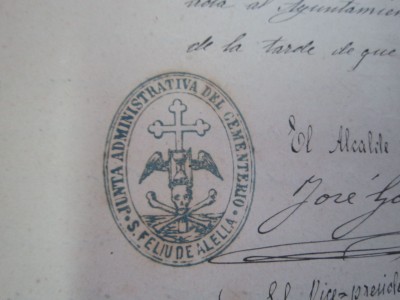 nota al Ayuntamien
de la tarde de que
JUNTA ADMINISTRATIVA DEL CEMENTERIO
S. FELIU DE ALELLA
El Alcalde
José
Vice-presid